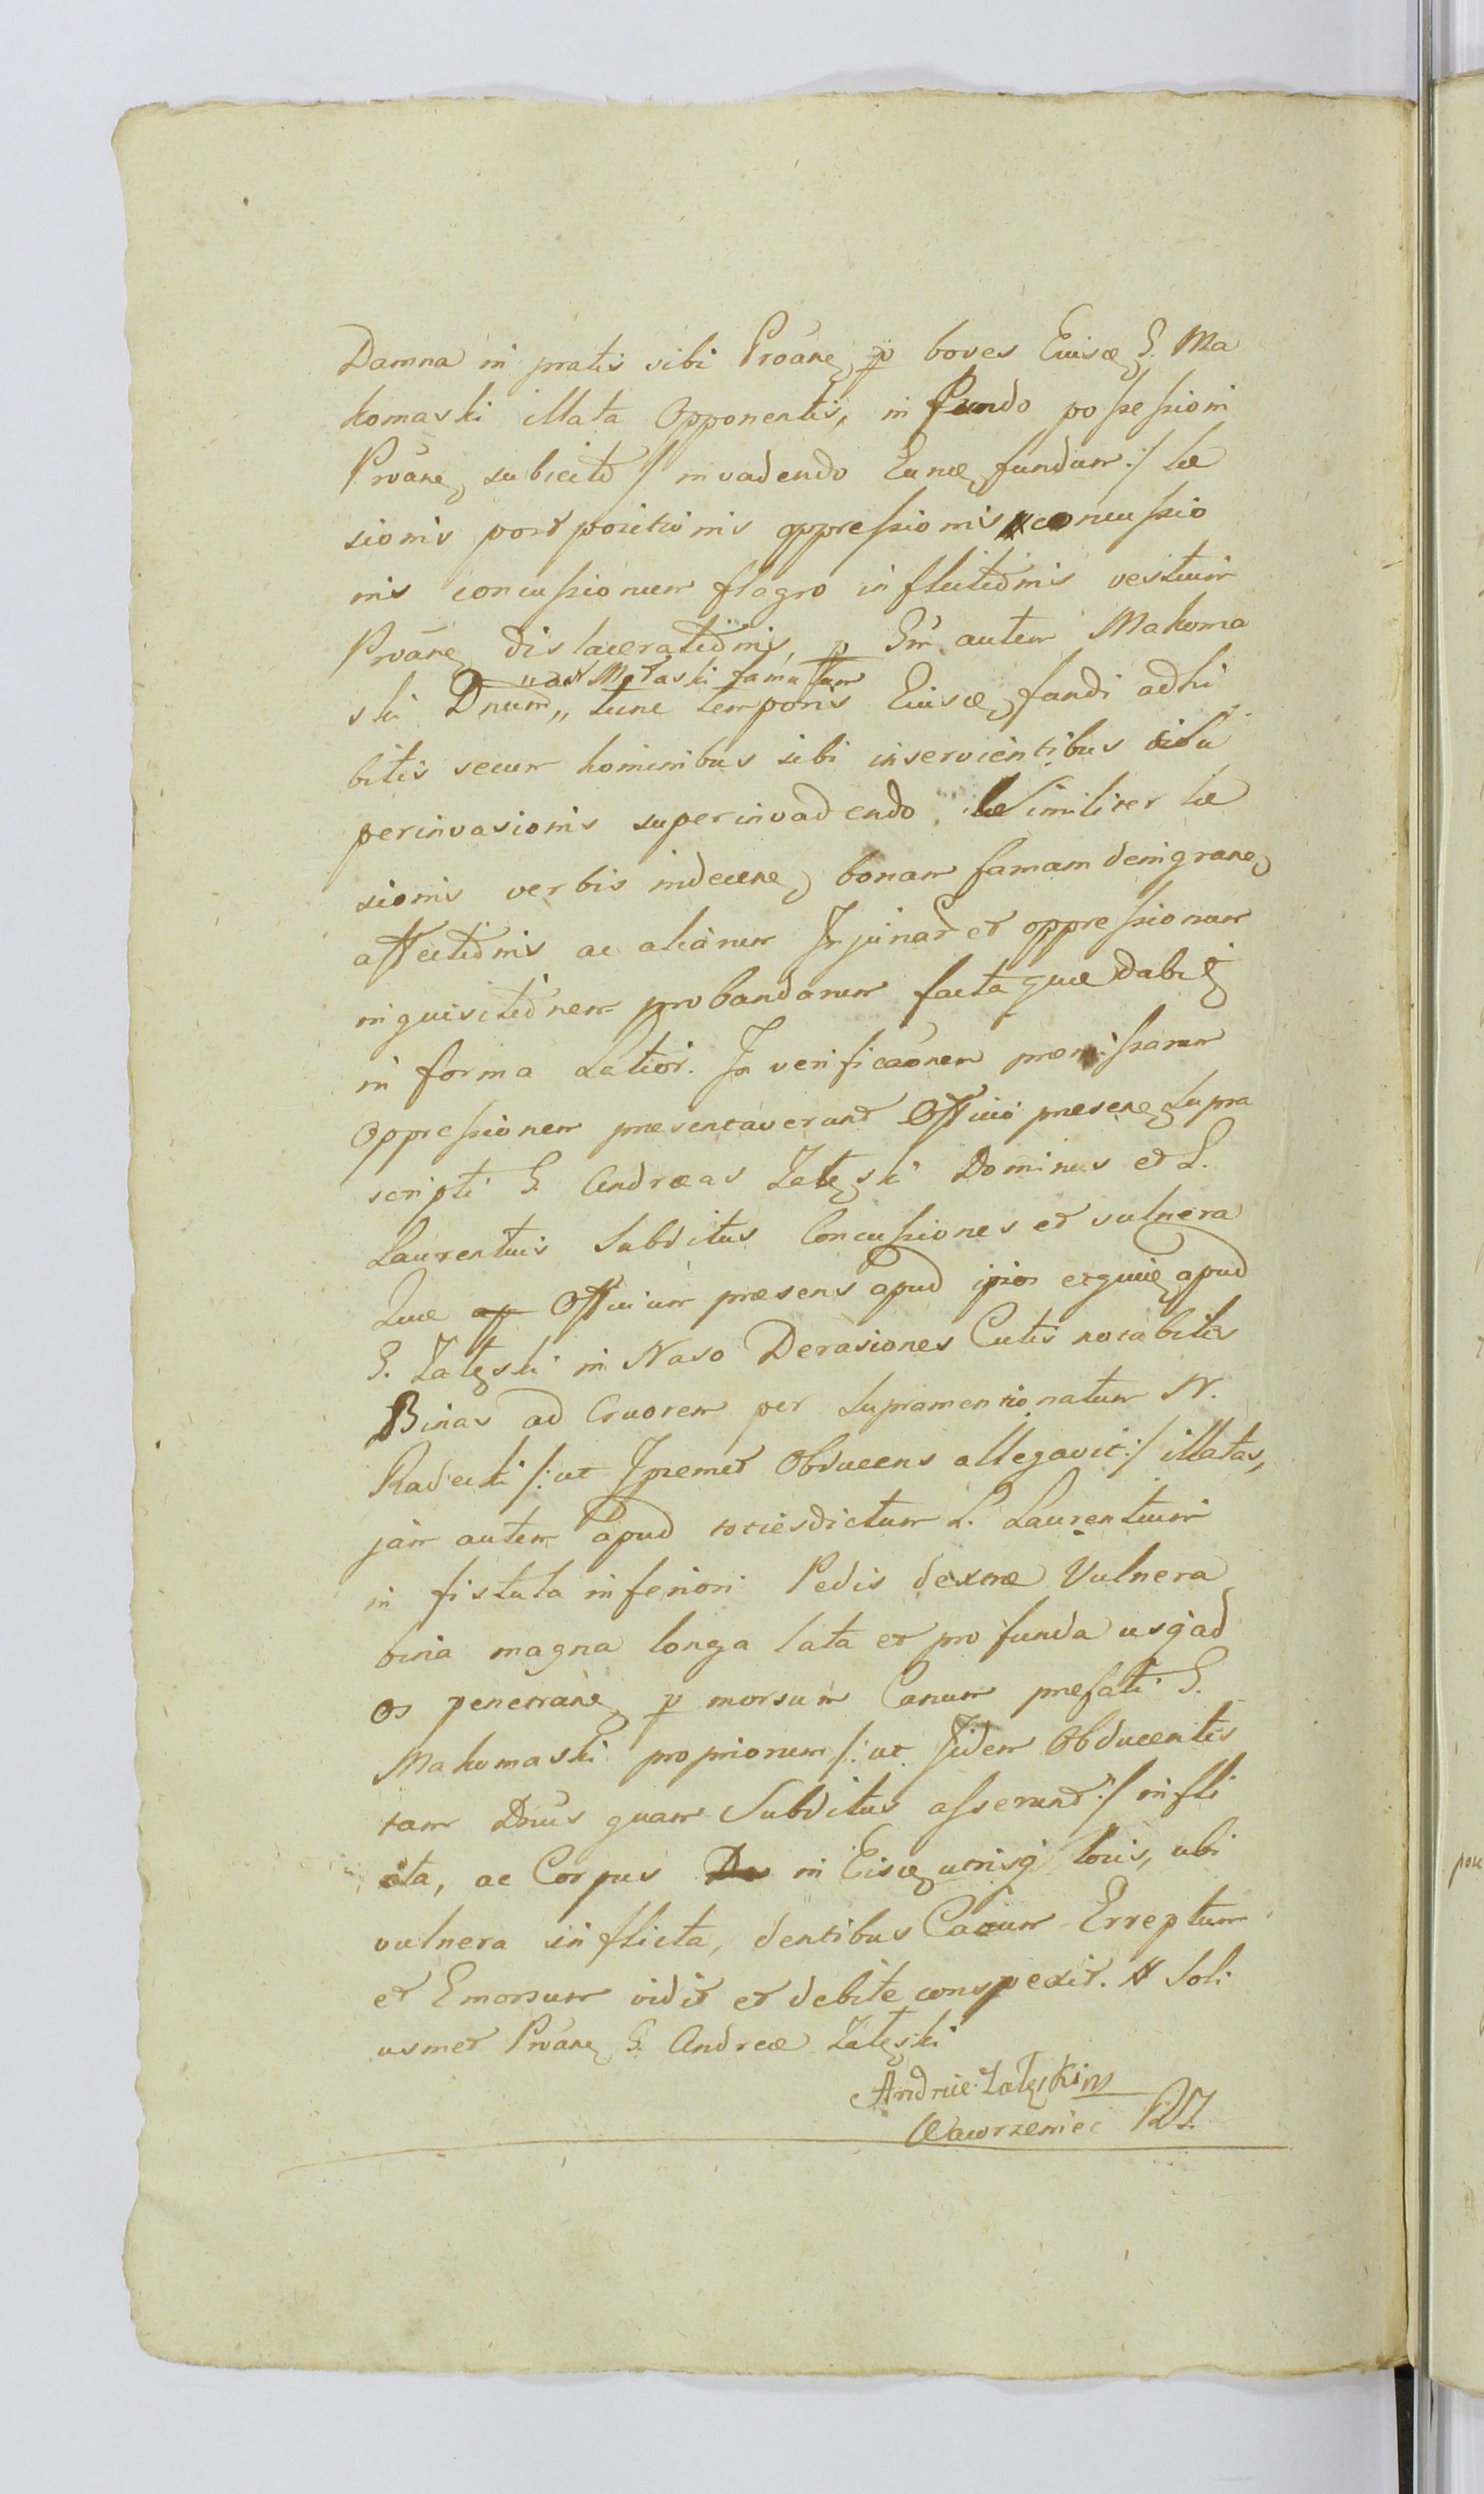 Damna in pratis sibi Proãne p boves Euisce G. Ma
komaski illata Opponentis, in fundo possessioni
Proãne subiecto /: invadendo Eunce fundum :/ læ
sionis postpositionis oppressionis concussio
nis concussionum flagro inflictionis vestium
Proãne dislaceratiõnis, p Gm autem Makoma
ski Dnum,, tunc temporis Euisce fundi adhi
bitis secum hominibus sibi inservientibus
perinvasionis superinvadendo Similiter læ
sionis verbis indecene bonam famam denigrane
affectiõnis ac aliãrum Injuriar et oppressionum
inquisitiõnem probandarum facta quæ dabit
in forma Latior. In verificaõnem præmissarum
Oppressionem præsentaverunt Officio præsene supra
scripti G. Andreas Załęski Dominus et L.
Laurentius Subditus Concussiones et vulnera
Quæ Officium præsens apud ipsos apud
G. Załęski in Naso Derasiones Cutis notabiles
Binas ad Cruorem per Supramentionatum N.
Radecki /: ut Ipsemet Obducens allegavit :/ illatas,
jam autem apud totiesdictum L. Laurentium
in fistula inferiori Pedis dextræ Vulnera
bina magna longa lata et profunda usq ad
os penetrane p morsum Canum præfati G.
Makomaski propriorum /: ut Iidem Obducentes
tam Dnus quam Subditus asserunt :/ infli
cta, ac Corpus in Eisce utrisq locis, ubi
vulnera inflicta, dentibus Canum Erreptum
et Emorsum vidit et debite conspexit. Soli
usmet Proãne G. Andreæ Załęski
Andrzie: Załęski
Wawrzeniec